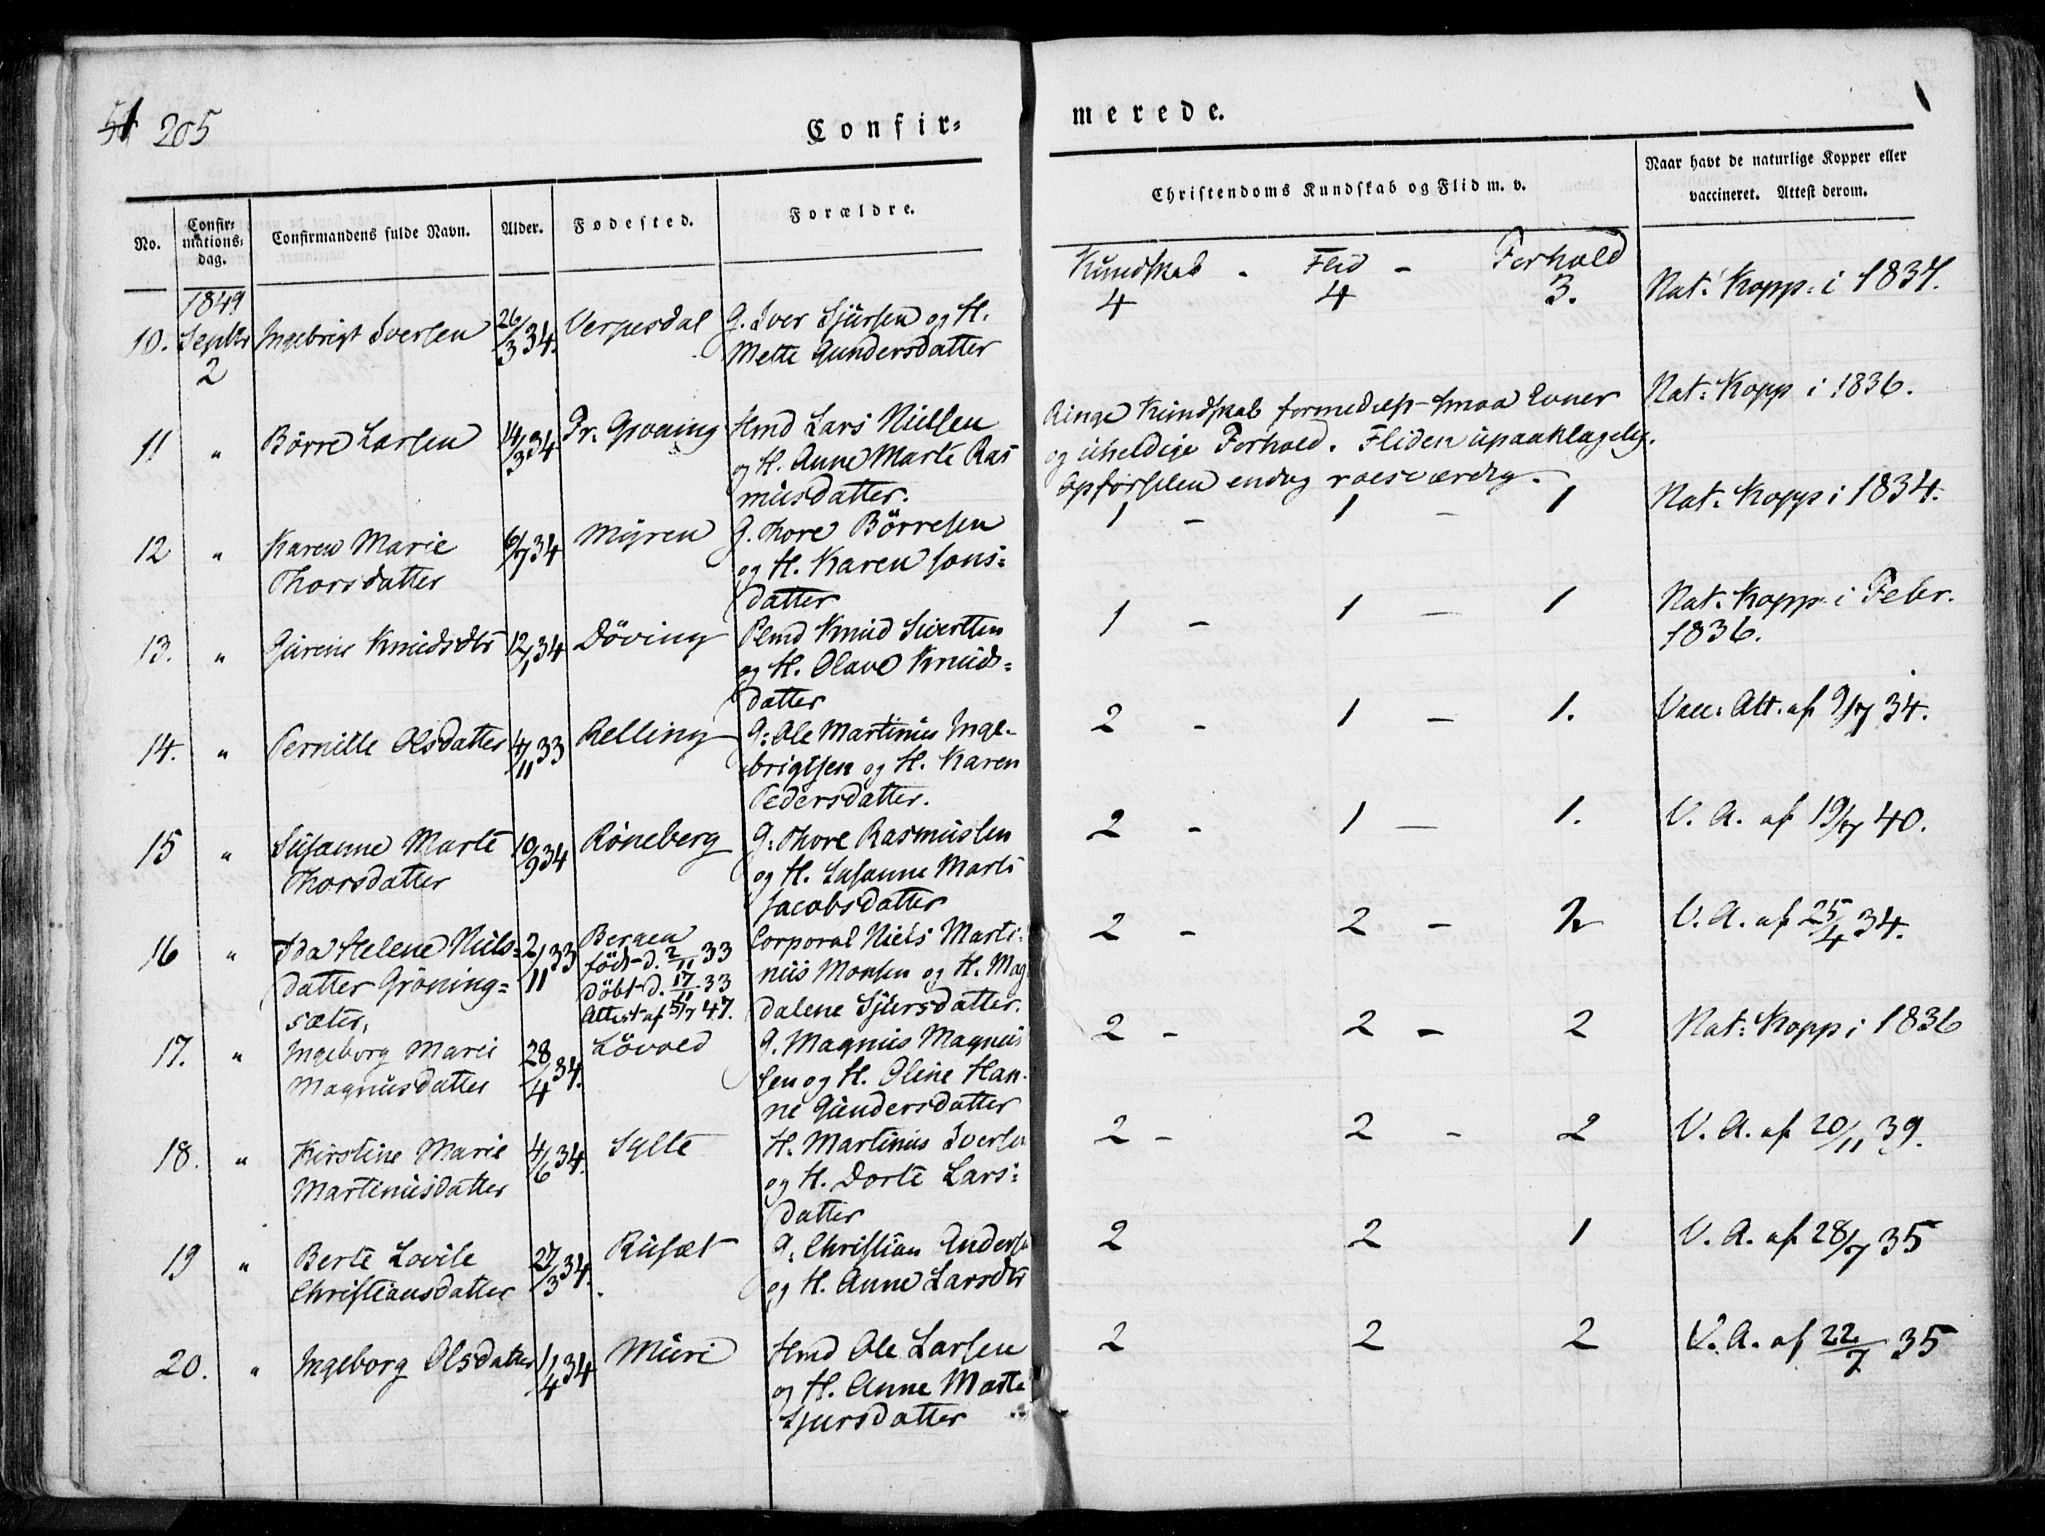 205
Confir-
merede.
No.
Confir-
mations-
dag.
Confirmandens fulde Navn.
Alder.
Fødested.
Forældre.
Christendoms Kundskab og Flid m. v.
Naar havt de naturlige Kopper eller
vaccineret. Attest derom.
1849
Kundskab - Flid - Forhold
10. Septbr Ingebrigt Iversen 26/3 34. G. Iver Sjursen og H. 4 4 3. Nat. Kopp. i 1834.
2 Mette Gundersdatter
11 " Børre Larsen 14/3 34 Pr. Hmd Lars Nielsen Ringe Kundskab formedelst smaa Evner Nat: Kopp i 1836.
og H. Anne Marte Ras og uheldige Forhold. Fliden upaaklagelig.
musdatter. Opførselen endog roesværdig.
12 " Karen Marie 6/7 34 Myren G. Thore Børresen 1 - 1 - 1 Nat. Kopp i 1834.
Thorsdatter og H. Karen Jons-
datter
13. " Gurine Knudsdtr 12/1 34 Døving Plmd Knud Sivertsen 1 - 1 - 1 Nat. Kopp i Febr.
og H. Olave Knuds- 1836.
datter
14. " Pernille Olsdatter 4/11 33 Relling G: Ole Martinus Inge- 2 - 1 - 1. Vacc. Att. af 9/7 34.
brigtsen og H. Karen
Pedersdatter.
15 " Susanne Marte 10/9 34 Røneberg G: Thore Rasmussen 2 - 1 - 1. V. A. af 19/7 40.
Thorsdatter og H. Susanne Marte
Jacobsdatter
16 " Ida Helene Niels- 2/11 33 Bergen Corporal Niels Marti- 2 - 2 - 2 V. A. af 25/4 34.
datter Grøning- født d. 2/11 33 nus Monsen og H. Mag
sæter. døbt d. 17/11 33 dalene Sjursdatter.
Attest af 5/7 47.
17. " Ingeborg Marie 28/4 34. Løvold G. Magnus Magnus 2 - 2 - 2 Nat: Kopp i 1836
Magnusdatter sen og H. Oline Han-
ne Gundersdatter
18. " Kirstine Marie 4/6 34. Sylte H. Martinus Iversen 2 - 2 - 2 V. A. af 20/11 39.
Martinusdatter og H. Dorte Lars-
datter
19 " Berte Lovise 27/3 34. Rusæt G: Christian Andersen 2 2 1 V. A. af 28/7 35
Christiansdatter og H. Anne Larsdtr
20. " Ingeborg Olsdatter 1/4 34 Muri Hmd Ole Larsen 2 2 2 V. A. af 22/7 35
og H. Anne Marte
Sjursdatter